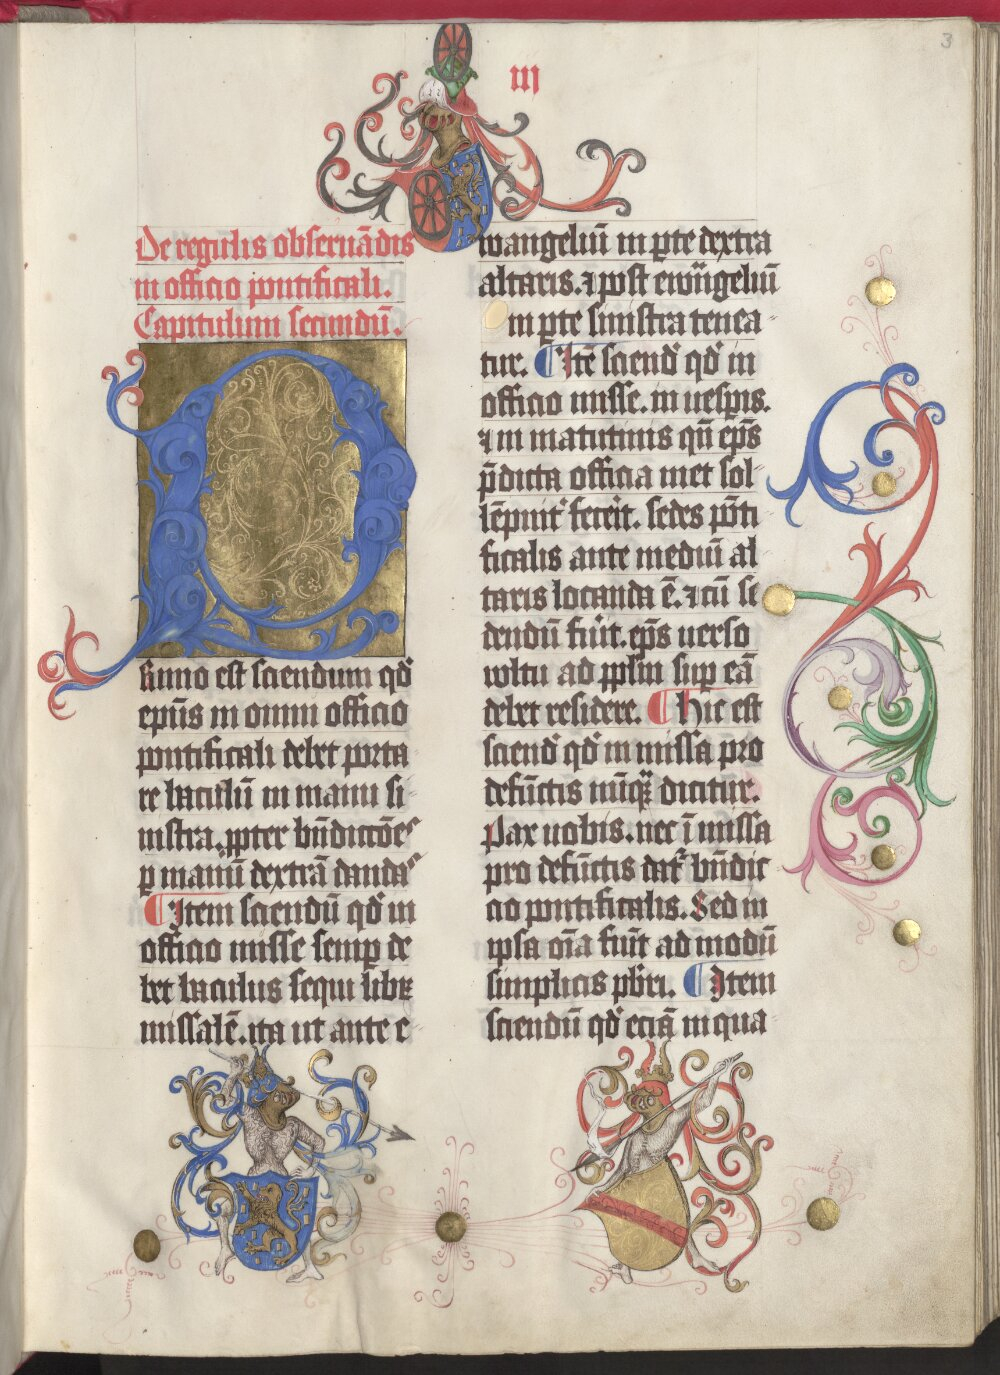 3
III
De regulis obseruādis
in officio pontificali.
Capitulum secundū.
Primo est sciendum qd̄
epūs in omni officio
pontificali debet porta
re baculū in manu si
nistra. ꝓpter bn̄dictōes
ꝑ manū dextrā dandas
¶ Item sciendū qd̄ in
officio misse semꝑ de
bet baculus sequi librꝫ
missalē. ita ut ante e
wangeliū in ꝑte dextra
altaris. ⁊ post ewāgeliū
in ꝑte sinistra tenea
tur. ¶ Itē sciend̄ qd̄ in
officio misse. in uesꝑis.
⁊ in matutinis qn̄ ep̄s
p̄dicta officia met sol
lēpnit᷑ fecerit. sedes pōti
ficalis ante mediū al
taris locanda ē. ⁊ cū se
dendū fūit. ep̄s uerso
wltu ad ppl̄m suꝑ eā
debet residere. ¶ Hic est
sciend̄ qd̄ in missa pro
defūctis nūqꝫ dicitur.
Pax uobis. nec ī missa
pro defūctis dat᷑ bn̄dic
cio pontificalis. Sed in
ipsa oīa fiūt ad modū
simplicis pb̄ri. ¶ Item
sciendū qd̄ eciā in qua